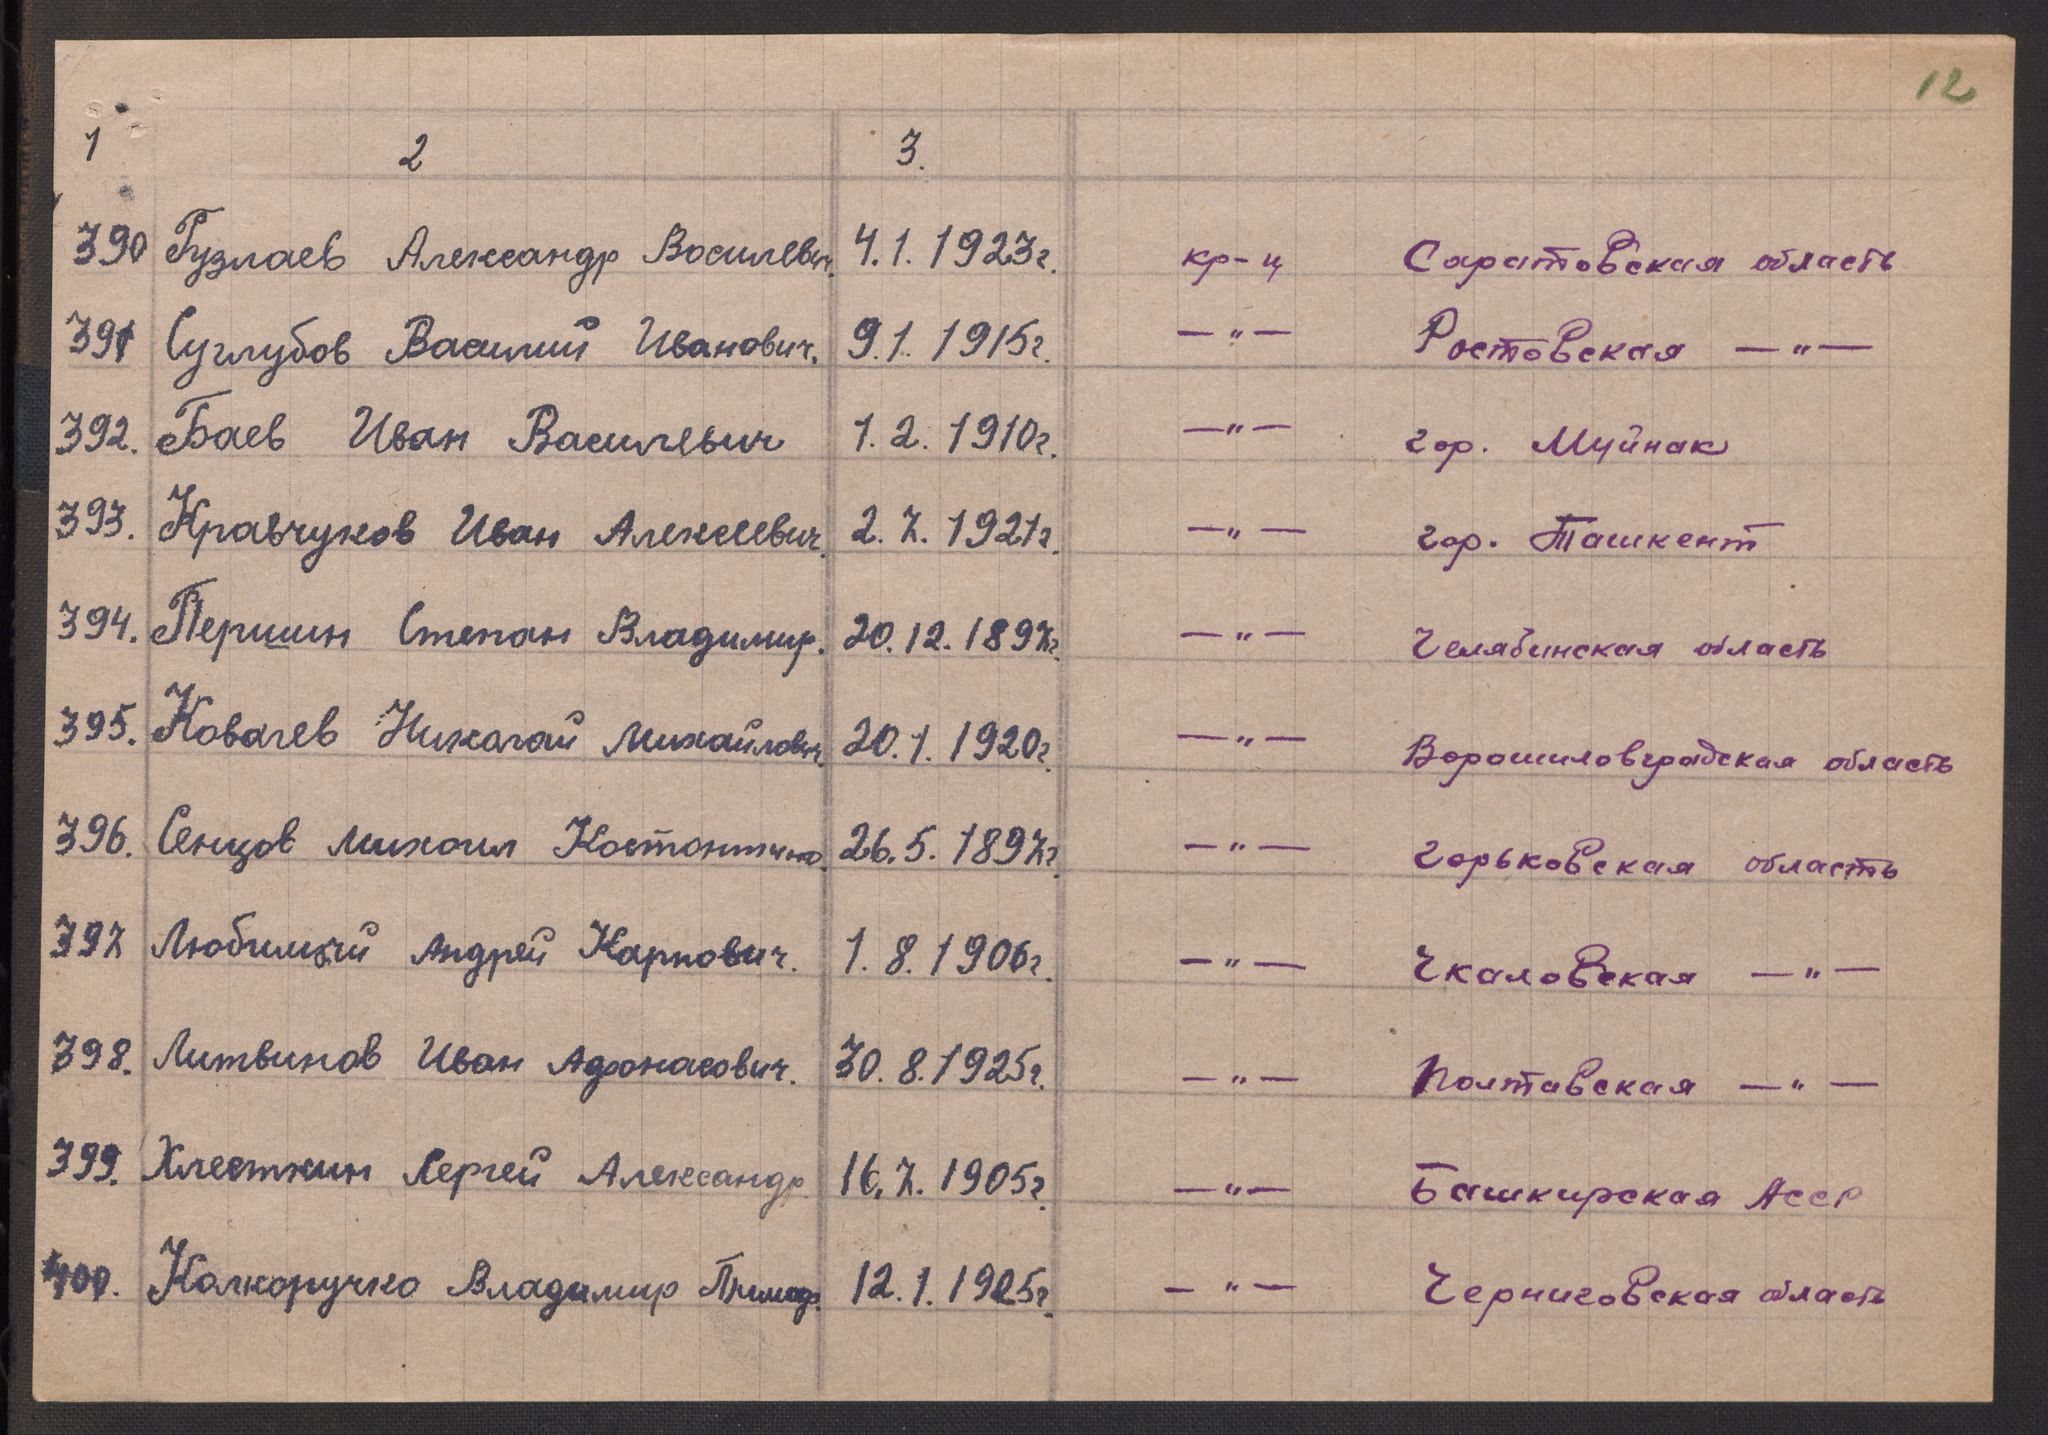 12
1 2 3.
390 Гузлаев Александр Василевич. 4.1.1923г. кр-ц Саратовская область
391 Суглубов Василий Иванович. 9.1.1915г. —"— Ростовская —"—
392. Баев Иван Василевич 1.2.1910г. —"— гор. Муйнак
393. Кравчуков Иван Алексеевич. 2.7.1921г. —"— гор. Ташкент
394. Першин Степан Владимир. 20.12.1897г. —"— Челябинская область
395. Ковалев Николай Михайлович. 20.1.1920г. —"— Ворошиловградская область
396. Сенцов Михаил 26.5.1897г. —"— Горьковская область
397 Андрей Карпович. 1.8.1906г. —"— Чкаловская —"—
398. Литвинов Иван Афонасович. 30.8.1925г. —"— Полтавская —"—
399. Хлесткин Сергей Александр. 16.7.1905г. —"— Башкирская АССР
400. Колкоручко Владимир 12.1.1925г. —"— Черниговская область